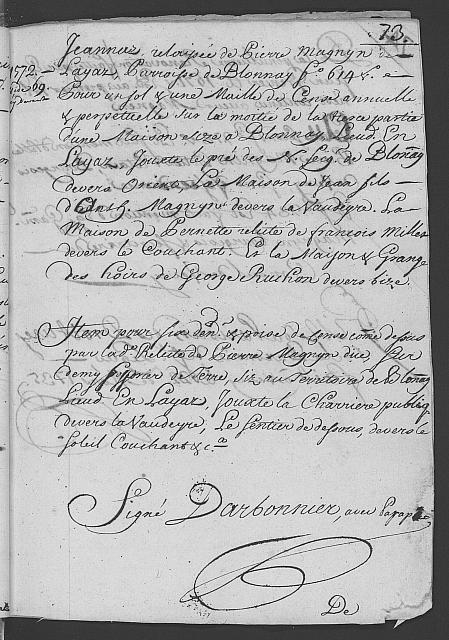 73.
Jeannaz, relaissée de Pierre Magnyn de
1572. Layaz, Parroise de Blonnay f.º 614 &.
Pour un sol & une Maille de Cense annuelle
& perpetuelle Sur la moitie de la tierce partie
d'une Maison size a Blonnay, Lieud. En
Layaz Jouxte le pré des N. Seig. de Blonay
devers Orient. La Maison de Jean fils
d' Magnyn devers la Vaudeyre. La
Maison de Pernette relicte de françois Millet
devers le Couchant. Et la Maison & Grange
des hoirs de George Ruchon devers bize.
Item pour six den. & poise de Cense comme dessus
par lad. Relicte de Pierre Magnyn düe, Sur
demy de Terre, Siz au Territoire de Blonay
Lieud. En Layaz, Jouxte la Charriere publiq
devers la Vaudeyre, Le Sentier de dessous, devers le
Soleil Couchant & c.ª
Signé Darbonnier, avec Paraphe
De